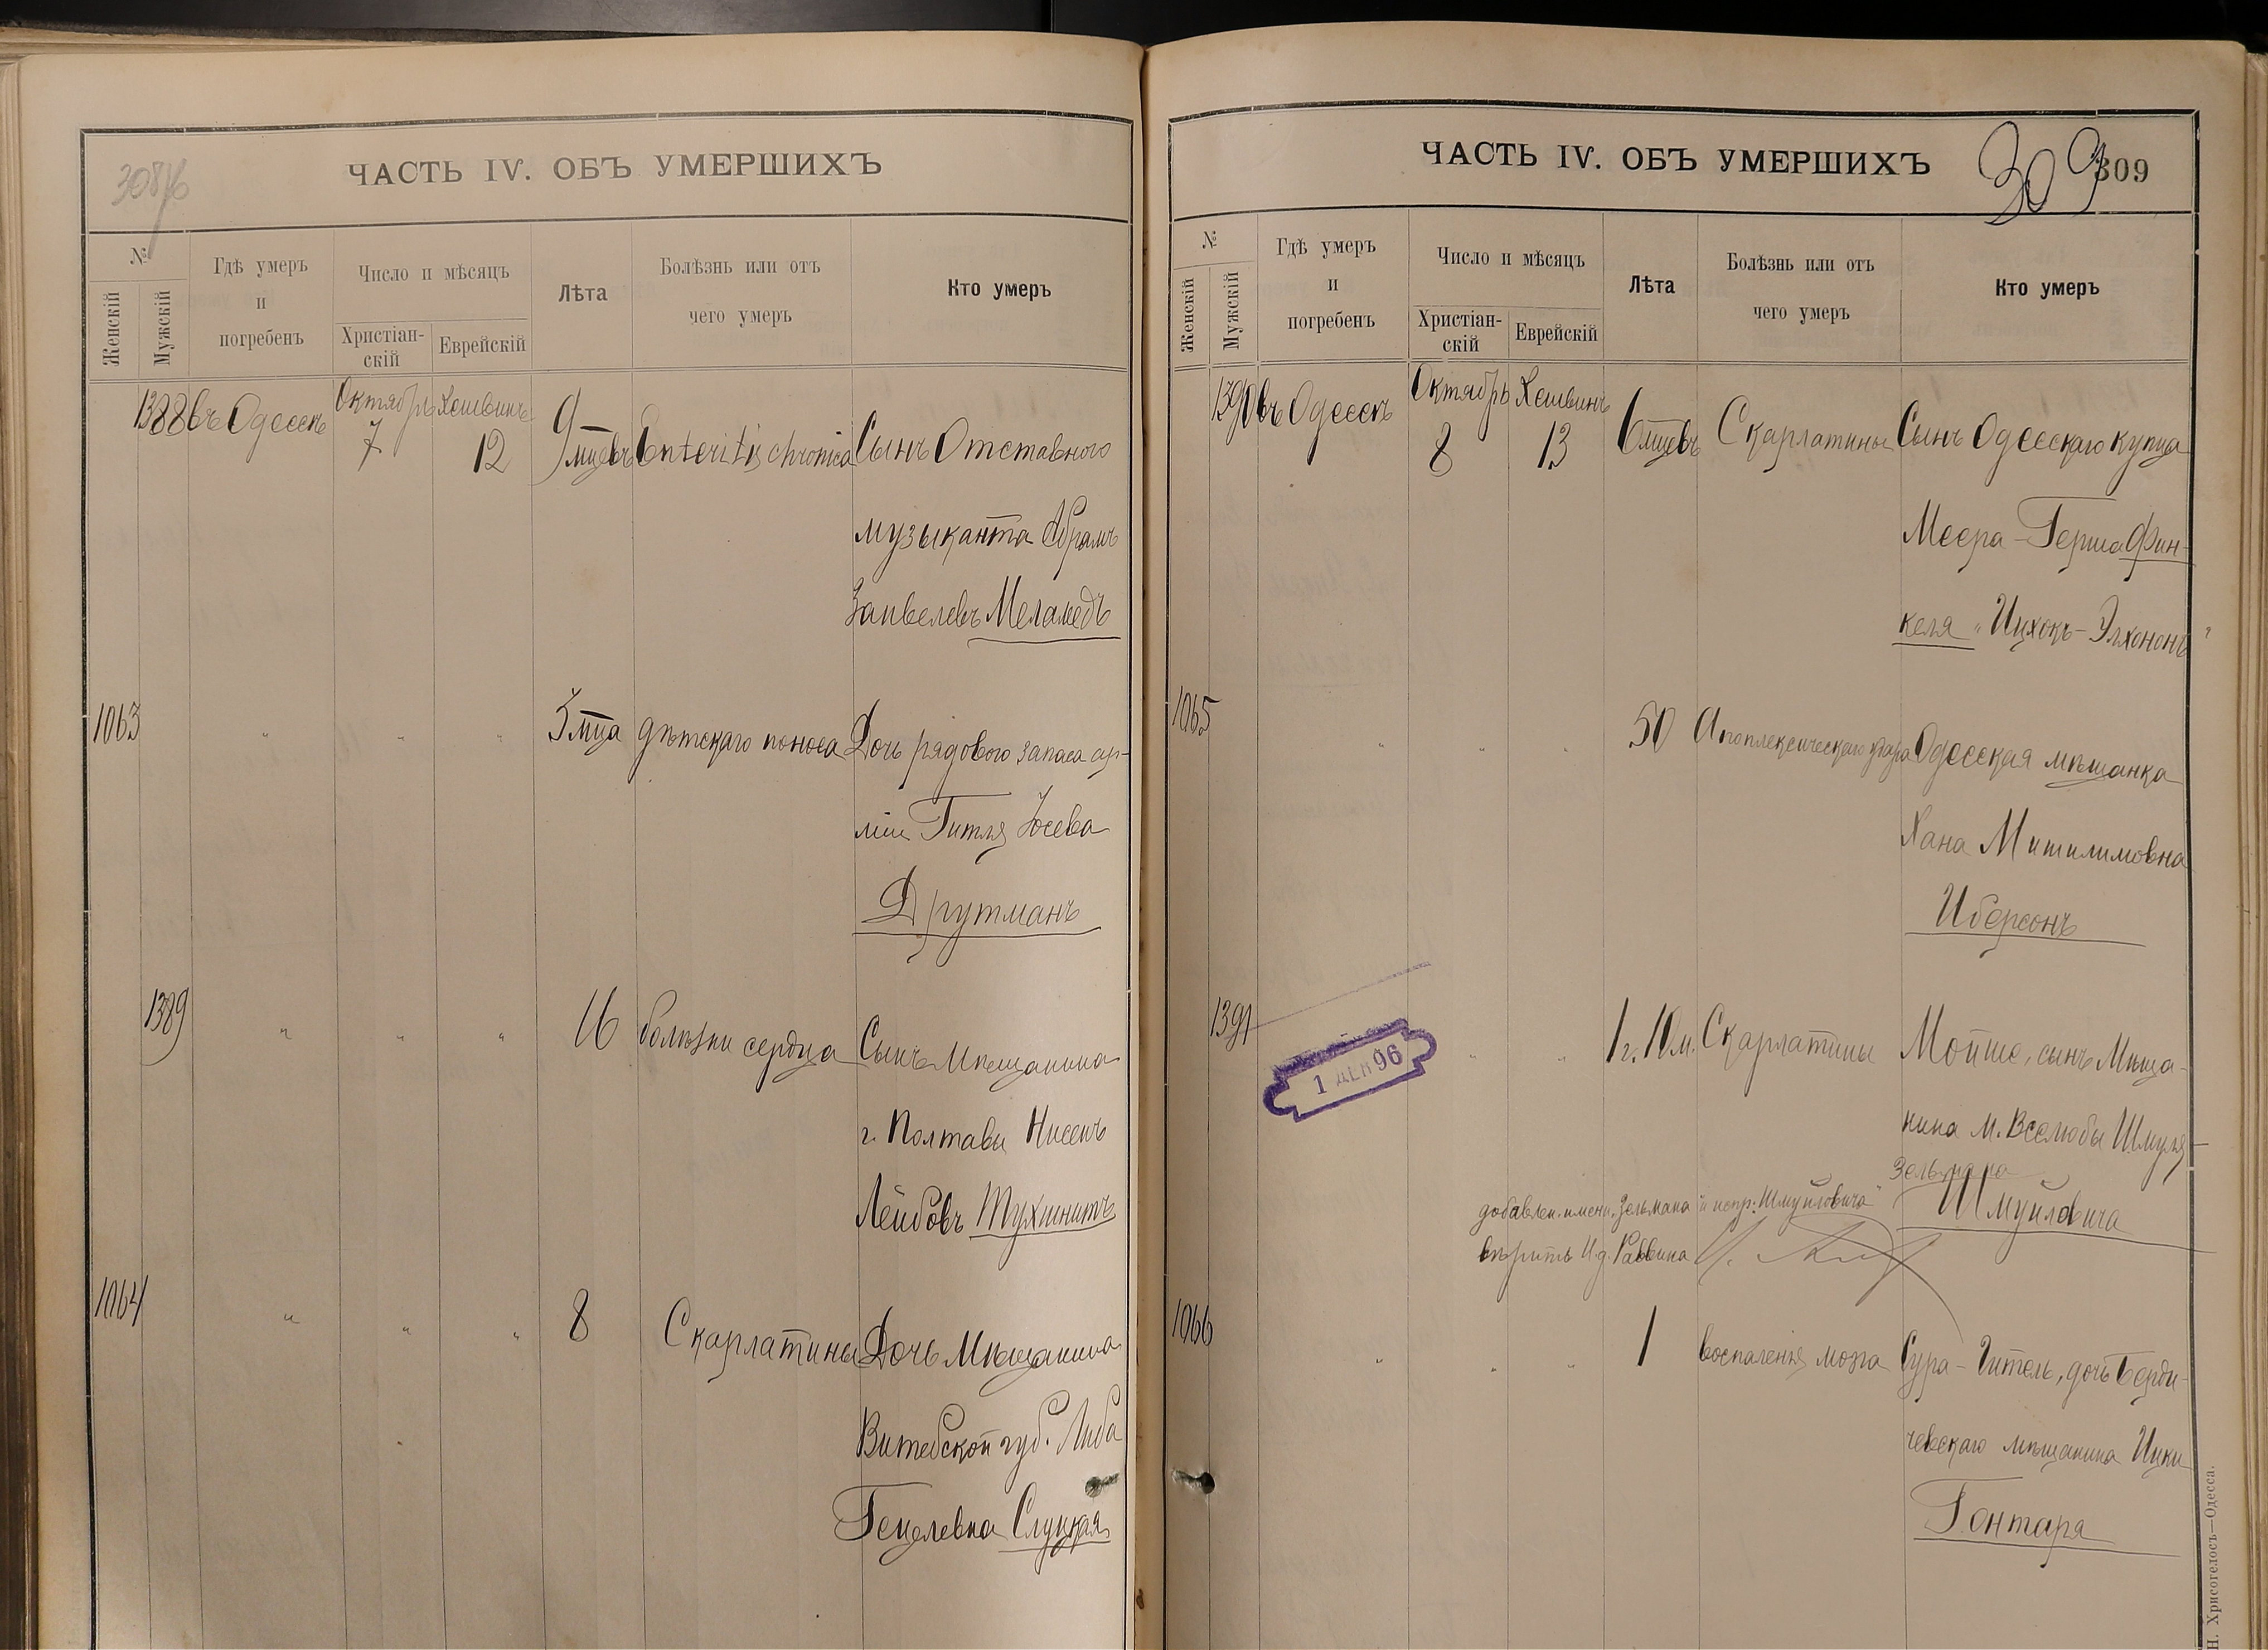 ЧАСТЬ IV. ОБЪ УМЕРШИХЪ
№
Женскій
Мужскій
Гдѣ умеръ
и
погребенъ
Число и мѣсяцъ
Христіан-
скій
Еврейскій
Лѣта
Болѣзнь или отъ
чего умеръ
Кто умеръ
1388 въ Одессѣ Октябрь Хешвинъ
7 12 9 мцевъ Enteritis chronica Сынъ Отставного
музыканта Абрамъ
Занвелевъ Меламедъ
1063 " " " 3 мца дѣтскаго поноса Дочь рядового запаса ар-
міи Гитля Іосева
Друтманъ
1389 " " " 16 болѣзни сердца Сынъ Мѣщанина
г. Полтавы Нисенъ
Лейбовъ Тухшнитъ
1064 " " " 8 Скарлатины Дочь Мѣщанина
Витебской губ. Либа
Гецелевна Слуцкая
ЧАСТЬ IV. ОБЪ УМЕРШИХЪ
309 309
№
Женскій
Мужскій
Гдѣ умеръ
и
погребенъ
Число и мѣсяцъ
Христіан-
скій
Еврейскій
Лѣта
Болѣзнь или отъ
чего умеръ
Кто умеръ
1390 въ Одессѣ Октябрь Хешвинъ
8 13 6 мцевъ Скарлатины Сынъ Одесскаго купца
Меера-Герша Фин-
келя "Ицхокъ-Элхононъ"
1065 " " " 50 Апоплексическаго удара Одесская мѣщанка
Хана Мишилимовна
Иберсонъ
1391 " " 1 г. 10 м. Скарлатины Мойше, сынъ Мѣща-
1 ДЕК 96
нина м. Вселюбы Шмуля-
Зельмана
Шмуйловича
добавлен. имени "Зельмана" и испр: "Шмуйловича"
вѣрить И.д. Раввина
1066 " " " 1 воспаленія мозга Сура-Гитель, дочь Берди-
чевскаго мѣщанина Ицки
Гонтаря
Н. Хрисогелосъ—Одесса.